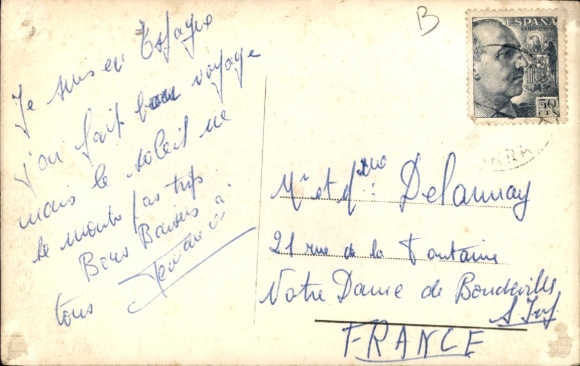 B
ESPAÑA
50
CTS
Je suis en Espagne
j'ai fait bon voyage
mais le soleil ne
se montre pas trop.
Bons Baisers à
tous
Mr et Mme : Delannay
21 rue de la Fontaine
Notre Dame de Bondeville
S. Inf.
FRANCE